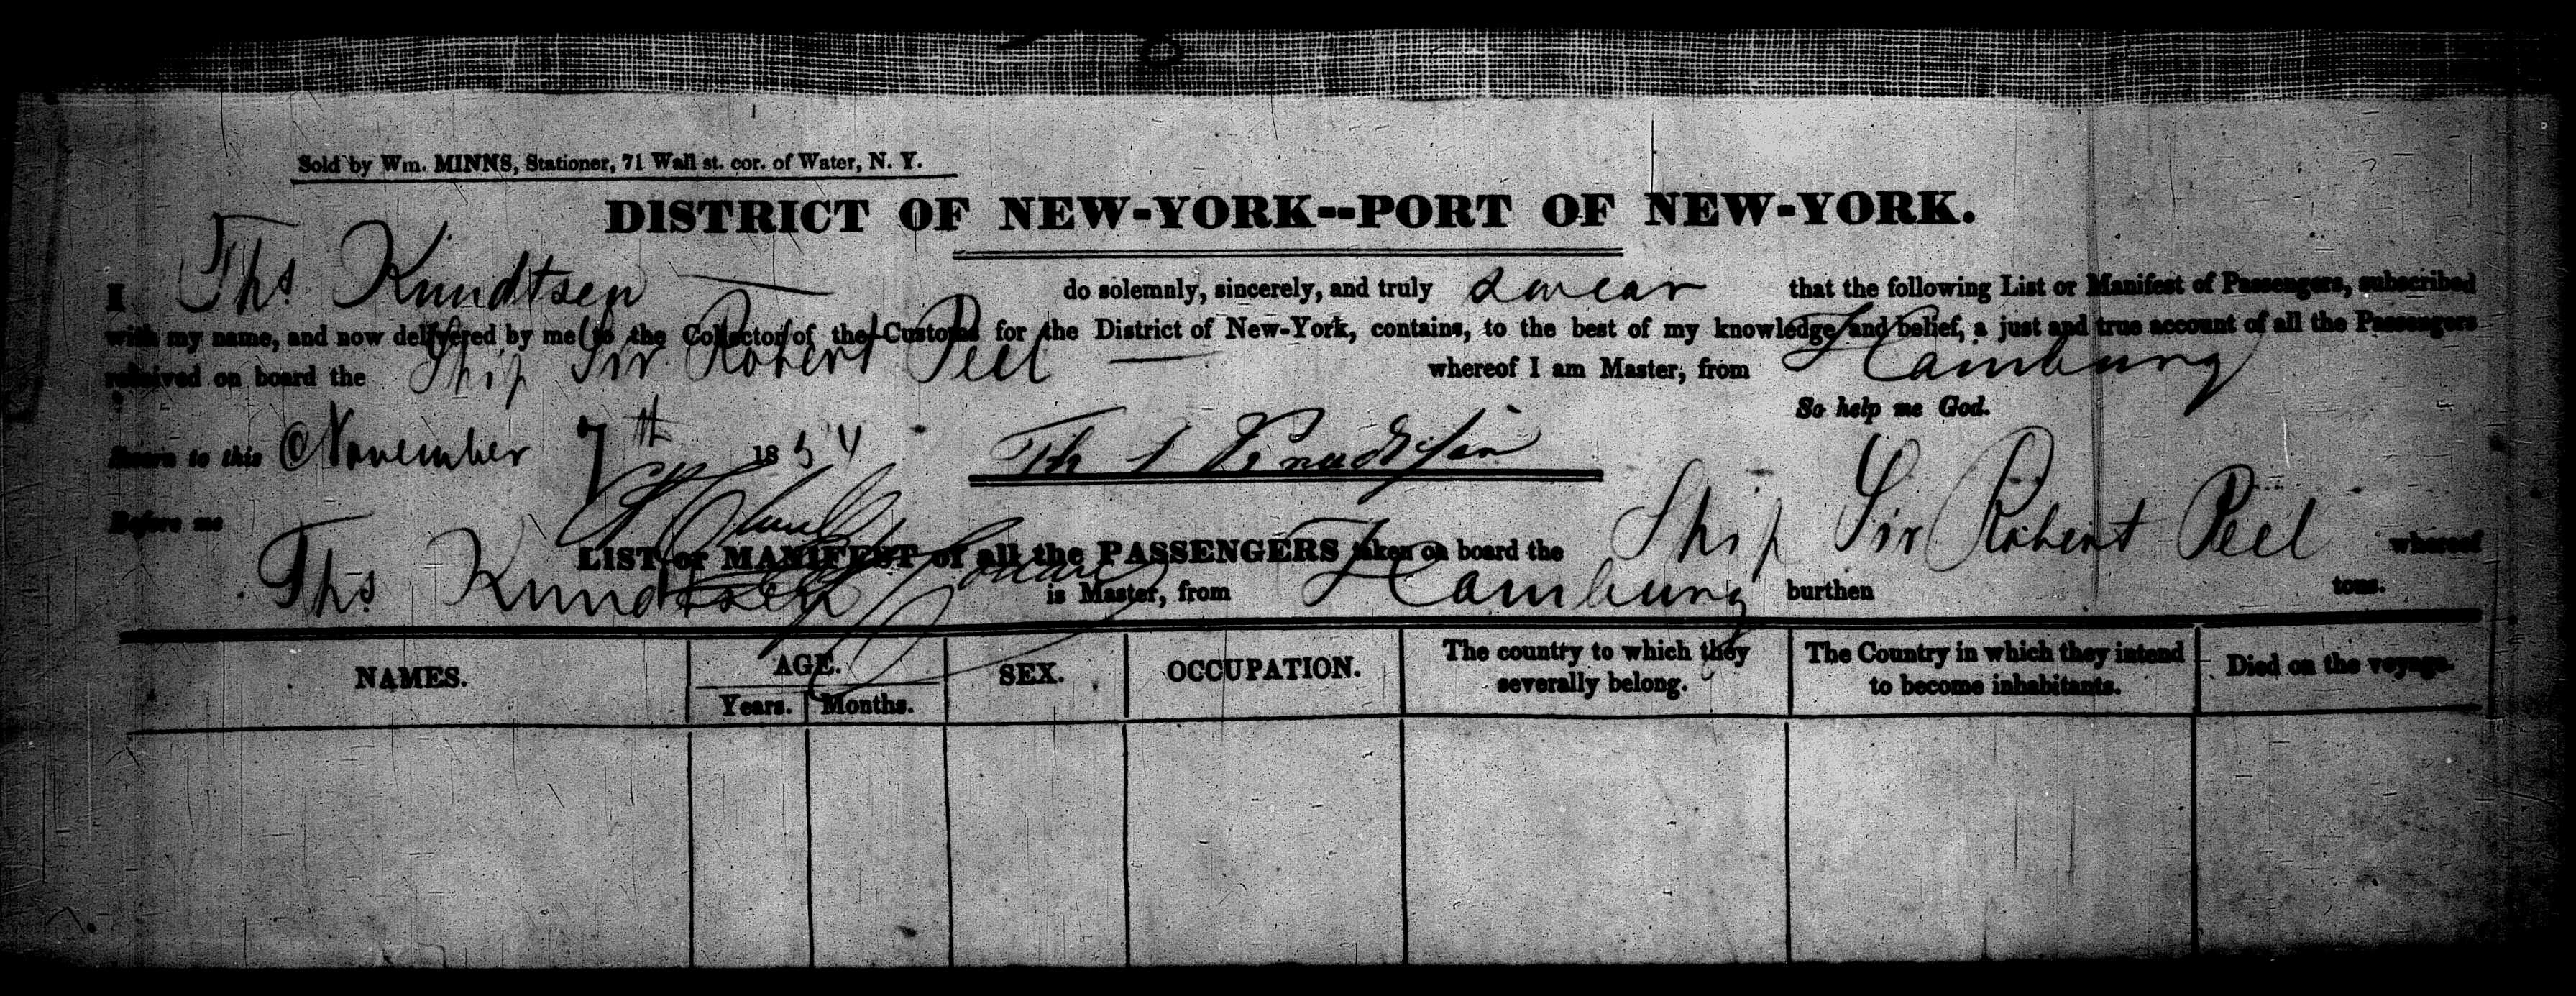 Sold by Wm. MINNS, Stationer, 71 Wall st. cor. of Water, N. Y.
DISTRICT OF NEW-YORK--PORT OF NEW-YORK.
I Ths Knudtsen do solemnly, sincerely, and truly swear that the following List or Manifest of Passengers, subscribed
with my name, and now delivered by me to the Collector of the Customs for the District of New-York, contains, to the best of my knowledge and belief, a just and true account of all the Passengers
received on board the Ship Sir Robert Peel whereof I am Master, from Hamburg
So help me God.
Sworn to this November 7th 1854 Th Knudtsen
Before me
LIST or MANIFEST of all the PASSENGERS taken on board the Ship Sir Robert Peel whereof
Ths Knudtsen is Master, from Hamburg burthen tons.
NAMES. AGE. Years. Months. SEX. OCCUPATION. The country to which they severally belong. The Country in which they intend to become inhabitants. Died on the voyage.